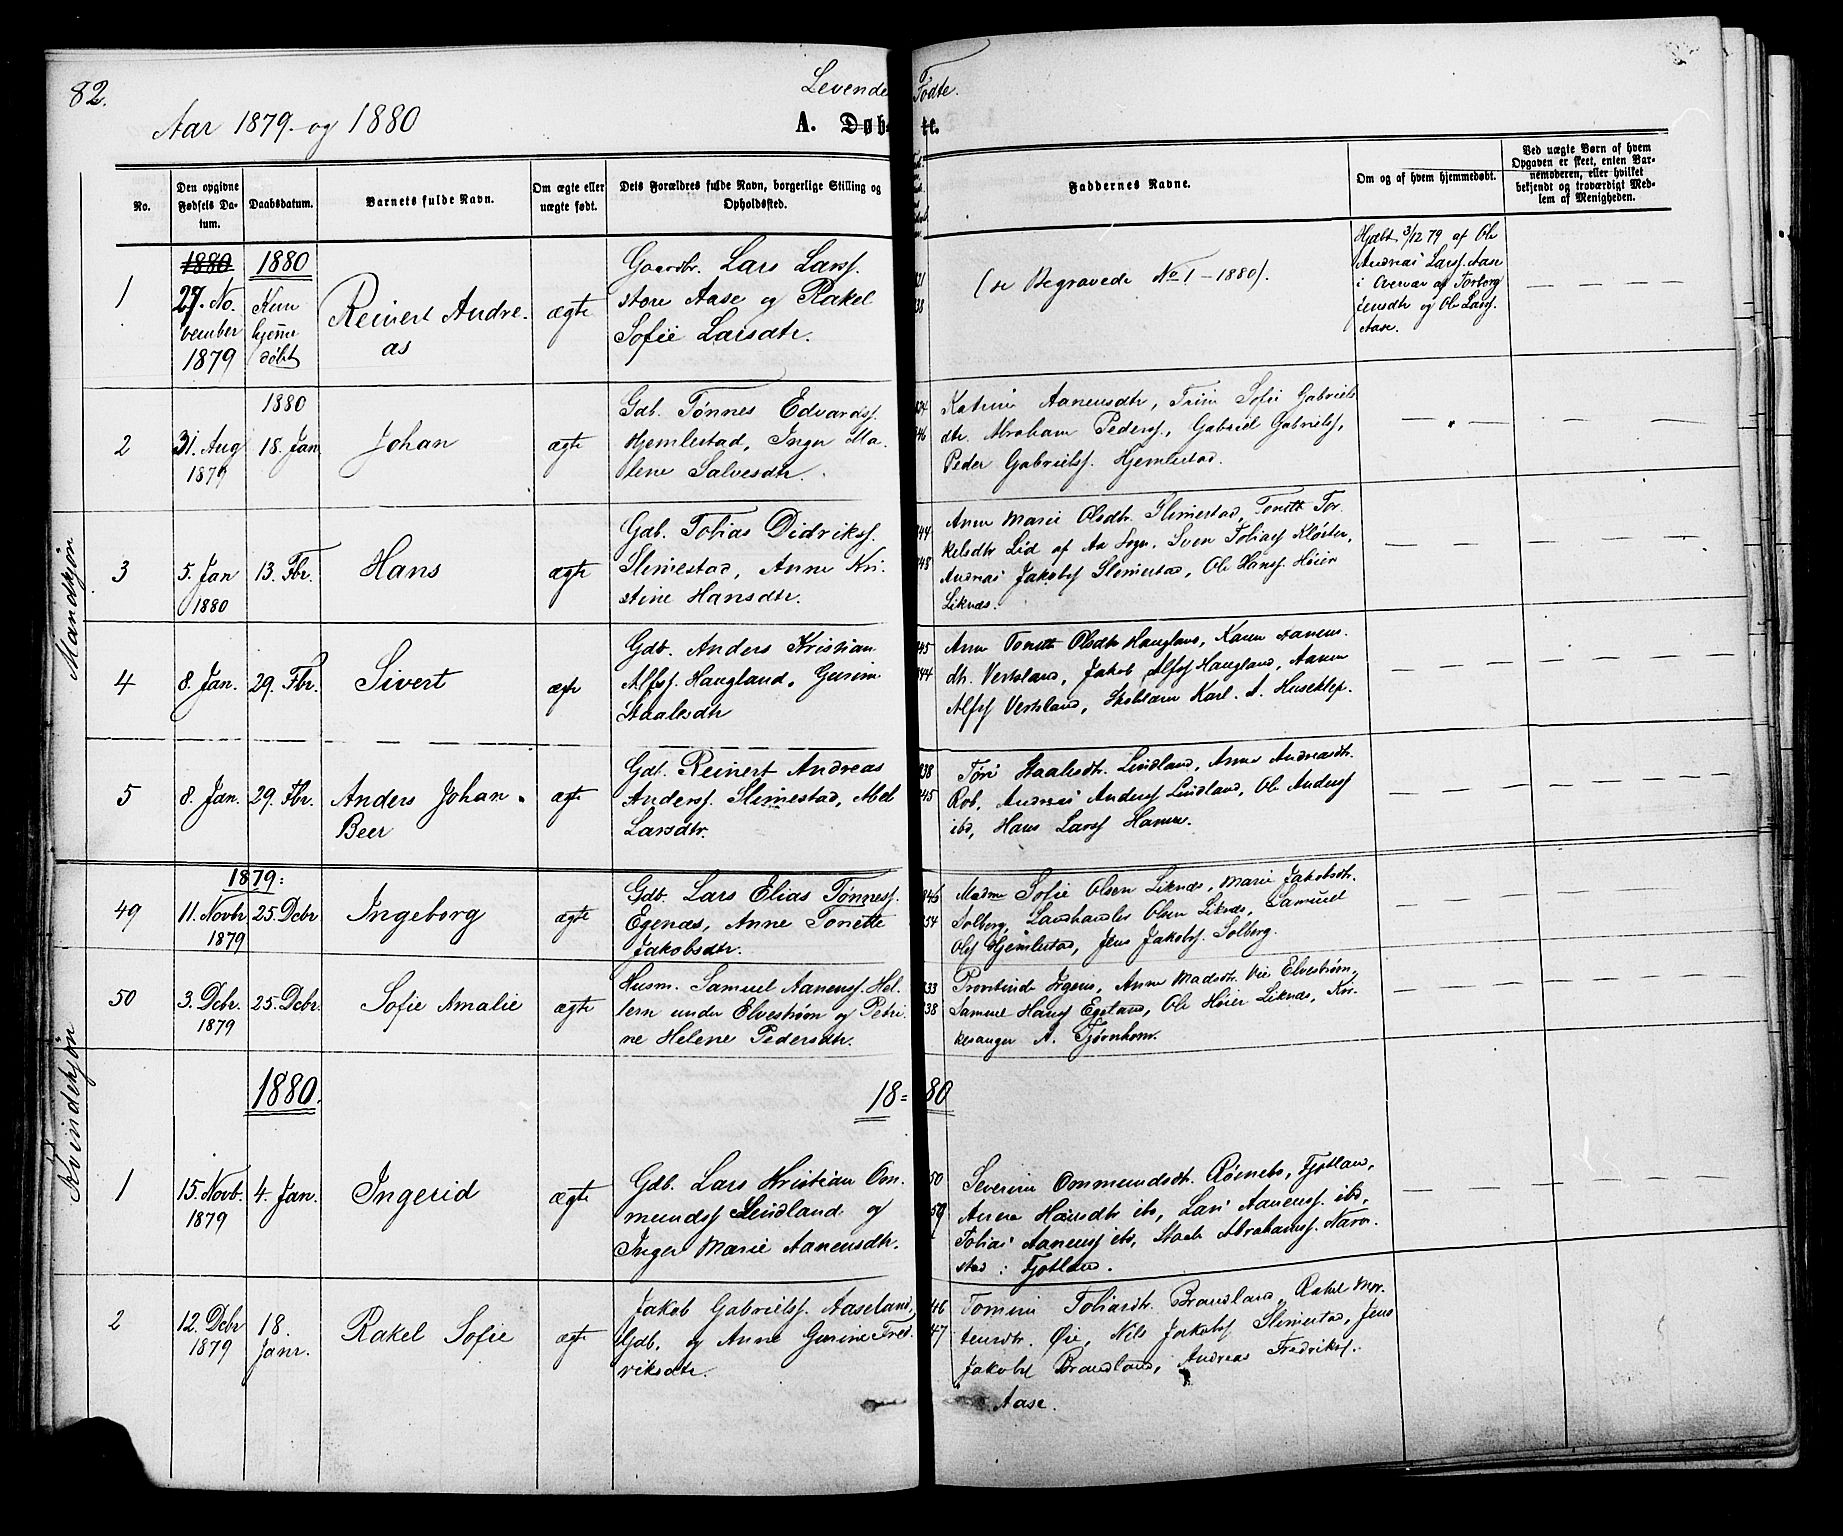 82.
Levende Fødte.
Aar 1879 og 1880
A. Døbte.
No.
Den opgivne Fødsels Da-
tum.
Daabsdatum.
Barnets fulde Navn.
Om ægte eller
uægte født.
Dets Forældres fulde Navn, borgerlige Stilling og
Opholdssted.
Faddernes Navne.
Om og af hvem hjemmedøbt.
Ved uægte Børn af hvem
Opgaven er skeet, enten Bar-
nemoderen, eller hvilket
bekjendt og troværdigt Med-
lem af Menigheden.
Mandkjøn
1
1880
27. No.
vember
1879
1880
Kun
hjemme
døbt
Reinert Andre.
as
ægte
Gaardbr. Lars Larss.
store Aase og Rakel
Sofie Larsdtr.
21
38
(se Begravede No 1 - 1880).
Hjdbt. 3/12 79 af Ole
Andreas Larss. Aase
i Overvær af Torborg
Jensdtr og Ole Larss.
Aase.
2
31. Aug
1879
1880
18. Jan
Johan
ægte
Gdb. Tønnes Edvardss.
Hjemlestad, Inger Ma-
lene Salvesdtr.
34
46
Katrine Aanensdtr, Trine Sofie Gabriels
dtr. Abraham Peders., Gabriel Gabrielss,
Peder Gabrielss. Hjemlestad.
3
5. Jan
1880
13. Fbr.
Hans
ægte
Gdb. Tobias Didrikss.
Slimestad, Anne Kri-
stine Hansdtr.
44
48
Anne Marie Olsdtr. Slimestad, Tonette Tor
kelsdtr Lid af Aa Sogn, Sven Tobiass Kloster,
Andreas Jakobss Slimestad, Ole Hanss. Høier
Liknæs.
4
8. Jan.
29. Fbr.
Sivert
ægte
Gdb. Anders Kristian
Alfss. Haugland, Gurine
Staalesdtr
45
44
Anne Tonette Olsdtr Haugland, Karen Aanens.
dtr. Versland, Jakob Alfss Haugland, Aanen
Alfss Versland, Skolelærer Karl. A. Huseklep.
5
8. Jan.
29. Fbr.
Anders Johan
Beer
ægte
Gdb. Reinert Andreas
Anderss. Slimestad, Abel
Larsdtr.
38
45
Tøri Staalesdtr. Lindland, Anne Andreasdtr.
Rob, Andreas Anderss Lindland, Ole Anderss
ibd, Hans Larss Hamre.
Kvindekjøn
49
1879:
11. Novbr
1879
25. Dcbr
Ingeborg
ægte
Gdb. Lars Elias Tønness.
Egenæs, Anne Tonette
Jakobsdtr.
846
54
Madm Sofie Olsen Liknæs, Marie Jakobsdtr.
Solberg, Landhandler Olsen Liknæs, Samuel
Olss Hjemlestad, Jens Jakobss. Solberg.
50
3. Dcbr.
1879
25. Dcbr.
Sofie Amalie
ægte
Husm. Samuel Aanenss. Hel-
lern under Elvestrøm og Petri-
ne Helene Pedersdtr.
33
38
Provstinde Irgens, Anne Madsdtr. Vie Elvestrøm,
Samuel Hanss Egeland, Ole Høier Liknæs, Kir
kesanger A. Tjørnhom.
1880.
18 = 80
1
15. Novb.
1879
4. Jan.
Ingerid
ægte
Gdb. Lars Kristian Om-
mundss Lindland og
Inger Marie Aanensdtr.
50
59
Severine Ommundsdtr. Røinebø, Fjotland,
Anna Hansdtr ibd, Lars Aanenss. ibd,
Tobias Aanenss ibd, Staale Abrahamss. Narve
stad i Fjotland.
2
12. Dcbr
1879
18.
Janr.
Rakel Sofie
ægte
Jakob Gabrielss. Aaseland,
Gdb. og Anne Gurine Fred.
riksdtr.
46
47
Tomine Tobiasdtr. Brandland, Rakel Mor-
tensdtr. Øie, Nils Jakobss Slimestad, Jens
Jakobss Brandland, Andreas Fredrikss.
Aase.